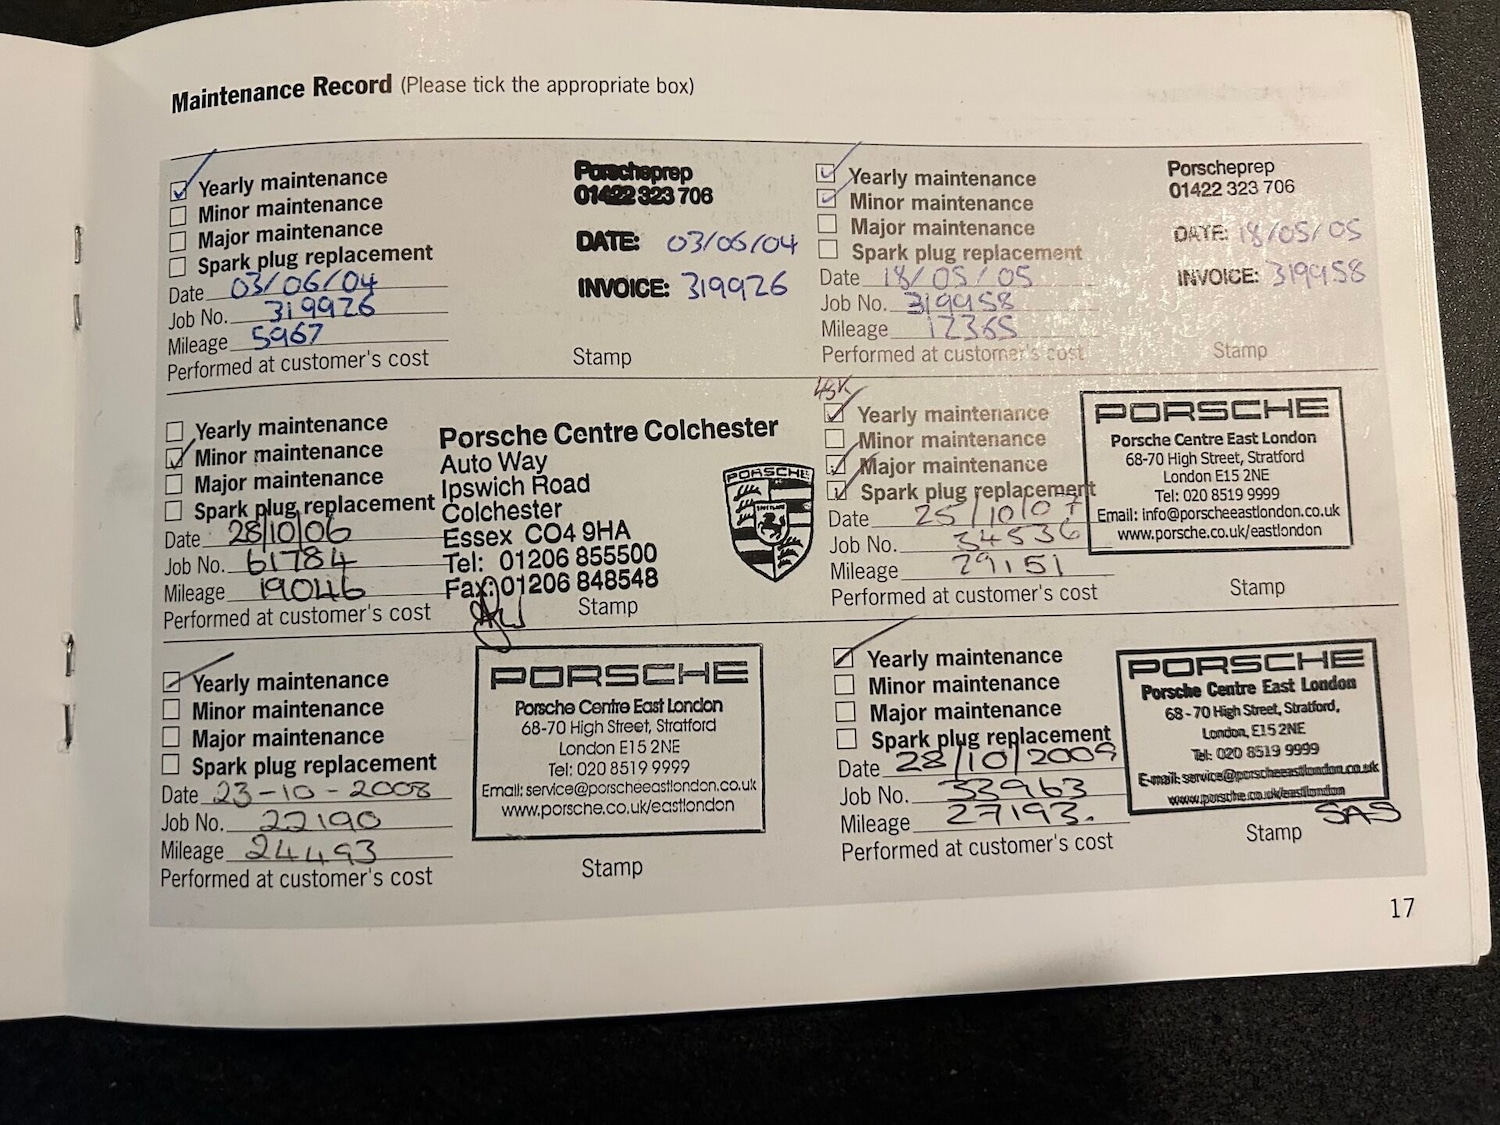 Maintenance Record (Please tick the appropriate box)
Yearly maintenance
Minor maintenance
Major maintenance
Spark plug replacement
Date 03/06/04
Job No. 319926
Mileage 5967
Performed at customer's cost
Porscheprep
01422 323 706
DATE: 03/06/04
INVOICE: 319926
Stamp
Yearly maintenance
Minor maintenance
Major maintenance
Spark plug replacement
Date 18/05/05
Job No. 319958
Mileage 12365
Performed at customer's cost
Porscheprep
01422 323 706
DATE: 18/05/05
INVOICE: 319958
Stamp
Yearly maintenance
Minor maintenance
Major maintenance
Spark plug replacement
Date 28/10/06
Job No. 61784
Mileage 19046
Performed at customer's cost
Porsche Centre Colchester
Auto Way
Ipswich Road
Colchester
Essex CO4 9HA
Tel: 01206 855500
Fax: 01206 848548
PORSCHE
Stamp
Yearly maintenance
Minor maintenance
Major maintenance
Spark plug replacement
Date 25/10/07
Job No. 34536
Mileage 29151
Performed at customer's cost
PORSCHE
Porsche Centre East London
68-70 High Street, Stratford
London E15 2NE
Tel: 020 8519 9999
Email: info@porscheeastlondon.co.uk
www.porsche.co.uk/eastlondon
Stamp
Yearly maintenance
Minor maintenance
Major maintenance
Spark plug replacement
Date 23-10-2008
Job No. 22190
Mileage 24493
Performed at customer's cost
PORSCHE
Porsche Centre East London
68-70 High Street, Stratford
London E15 2NE
Tel: 020 8519 9999
Email: service@porscheeastlondon.co.uk
www.porsche.co.uk/eastlondon
Stamp
Yearly maintenance
Minor maintenance
Major maintenance
Spark plug replacement
Date 28/10/2009
Job No. 33963
Mileage 27193.
Performed at customer's cost
PORSCHE
Porsche Centre East London
68-70 High Street, Stratford,
London, E15 2NE
Tel: 020 8519 9999
E-mail: service@porscheeastlondon.co.uk
www.porsche.co.uk/eastlondon
Stamp SAS
17